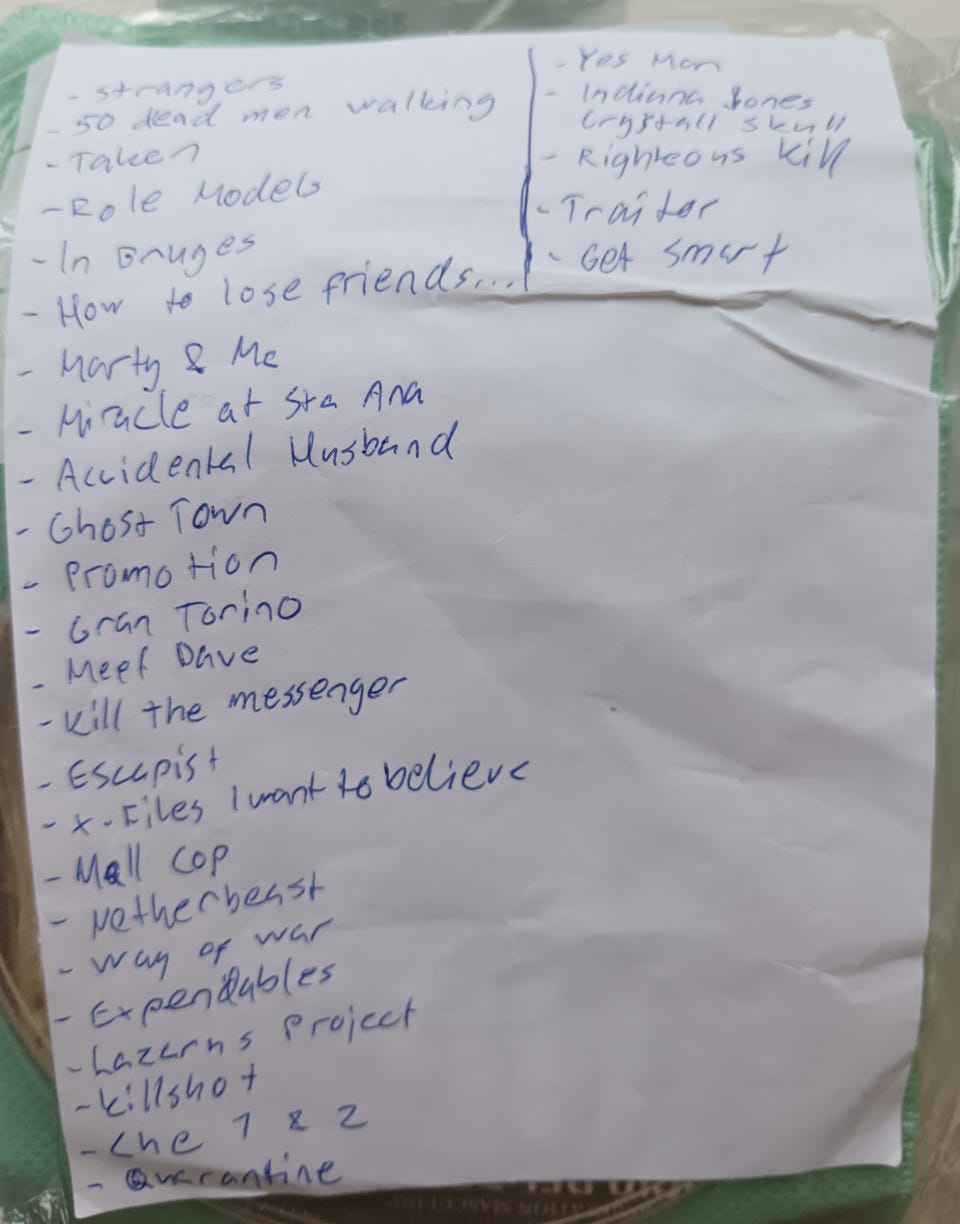 - Strangers
- 50 dead men walking
- Taken
- Role Models
- In Bruges
- How to lose friends...
- Marty & Me
- Miracle at Sta Ana
- Accidental Husband
- Ghost Town
- Promotion
- Gran Torino
- Meet Dave
- Kill the messenger
- Escapist
- X-Files I want to believe
- Mall Cop
- Netherbeast
- Way of war
- Expendables
- Lazarus Project
- Killshot
- Che 1 & 2
- Quarantine
- Yes Man
- Indiana Jones
Crystall Skull
- Righteous Kill
- Traitor
- Get Smart